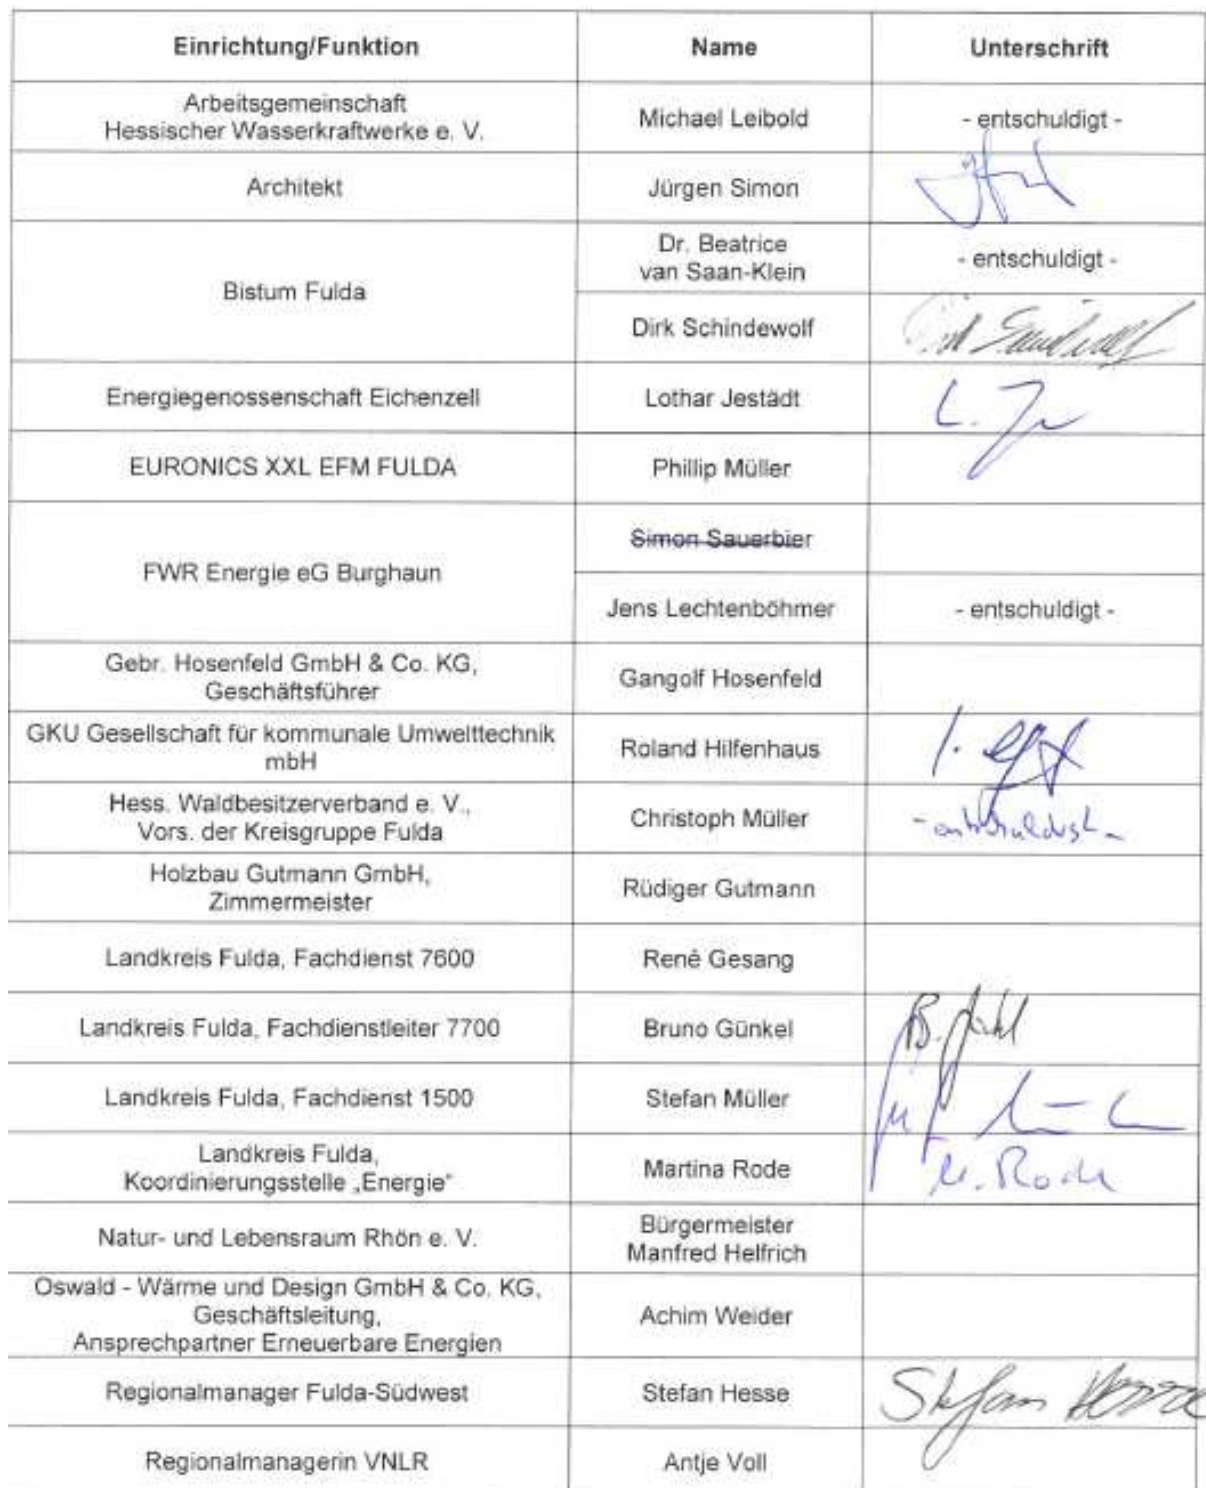 Einrichtung/Funktion Name Unterschrift
Arbeitsgemeinschaft
Hessischer Wasserkraftwerke e. V. Michael Leibold - entschuldigt -
Architekt Jürgen Simon
Bistum Fulda
Dr. Beatrice
van Saan-Klein - entschuldigt -
Dirk Schindewolf
Energiegenossenschaft Eichenzell Lothar Jestädt L. J
EURONICS XXL EFM FULDA Phillip Müller
FWR Energie eG Burghaun
Simon Sauerbier
Jens Lechtenböhmer - entschuldigt -
Gebr. Hosenfeld GmbH & Co. KG,
Geschäftsführer Gangolf Hosenfeld
GKU Gesellschaft für kommunale Umwelttechnik
mbH Roland Hilfenhaus
Hess. Waldbesitzerverband e. V.,
Vors. der Kreisgruppe Fulda Christoph Müller - entschuldigt -
Holzbau Gutmann GmbH,
Zimmermeister Rüdiger Gutmann
Landkreis Fulda, Fachdienst 7600 René Gesang
Landkreis Fulda, Fachdienstleiter 7700 Bruno Günkel B.
Landkreis Fulda, Fachdienst 1500 Stefan Müller
Landkreis Fulda,
Koordinierungsstelle „Energie“ Martina Rode M. Rode
Natur- und Lebensraum Rhön e. V.
Bürgermeister
Manfred Helfrich
Oswald - Wärme und Design GmbH & Co. KG,
Geschäftsleitung,
Ansprechpartner Erneuerbare Energien Achim Weider
Regionalmanager Fulda-Südwest Stefan Hesse Stefan Hesse
Regionalmanagerin VNLR Antje Voll